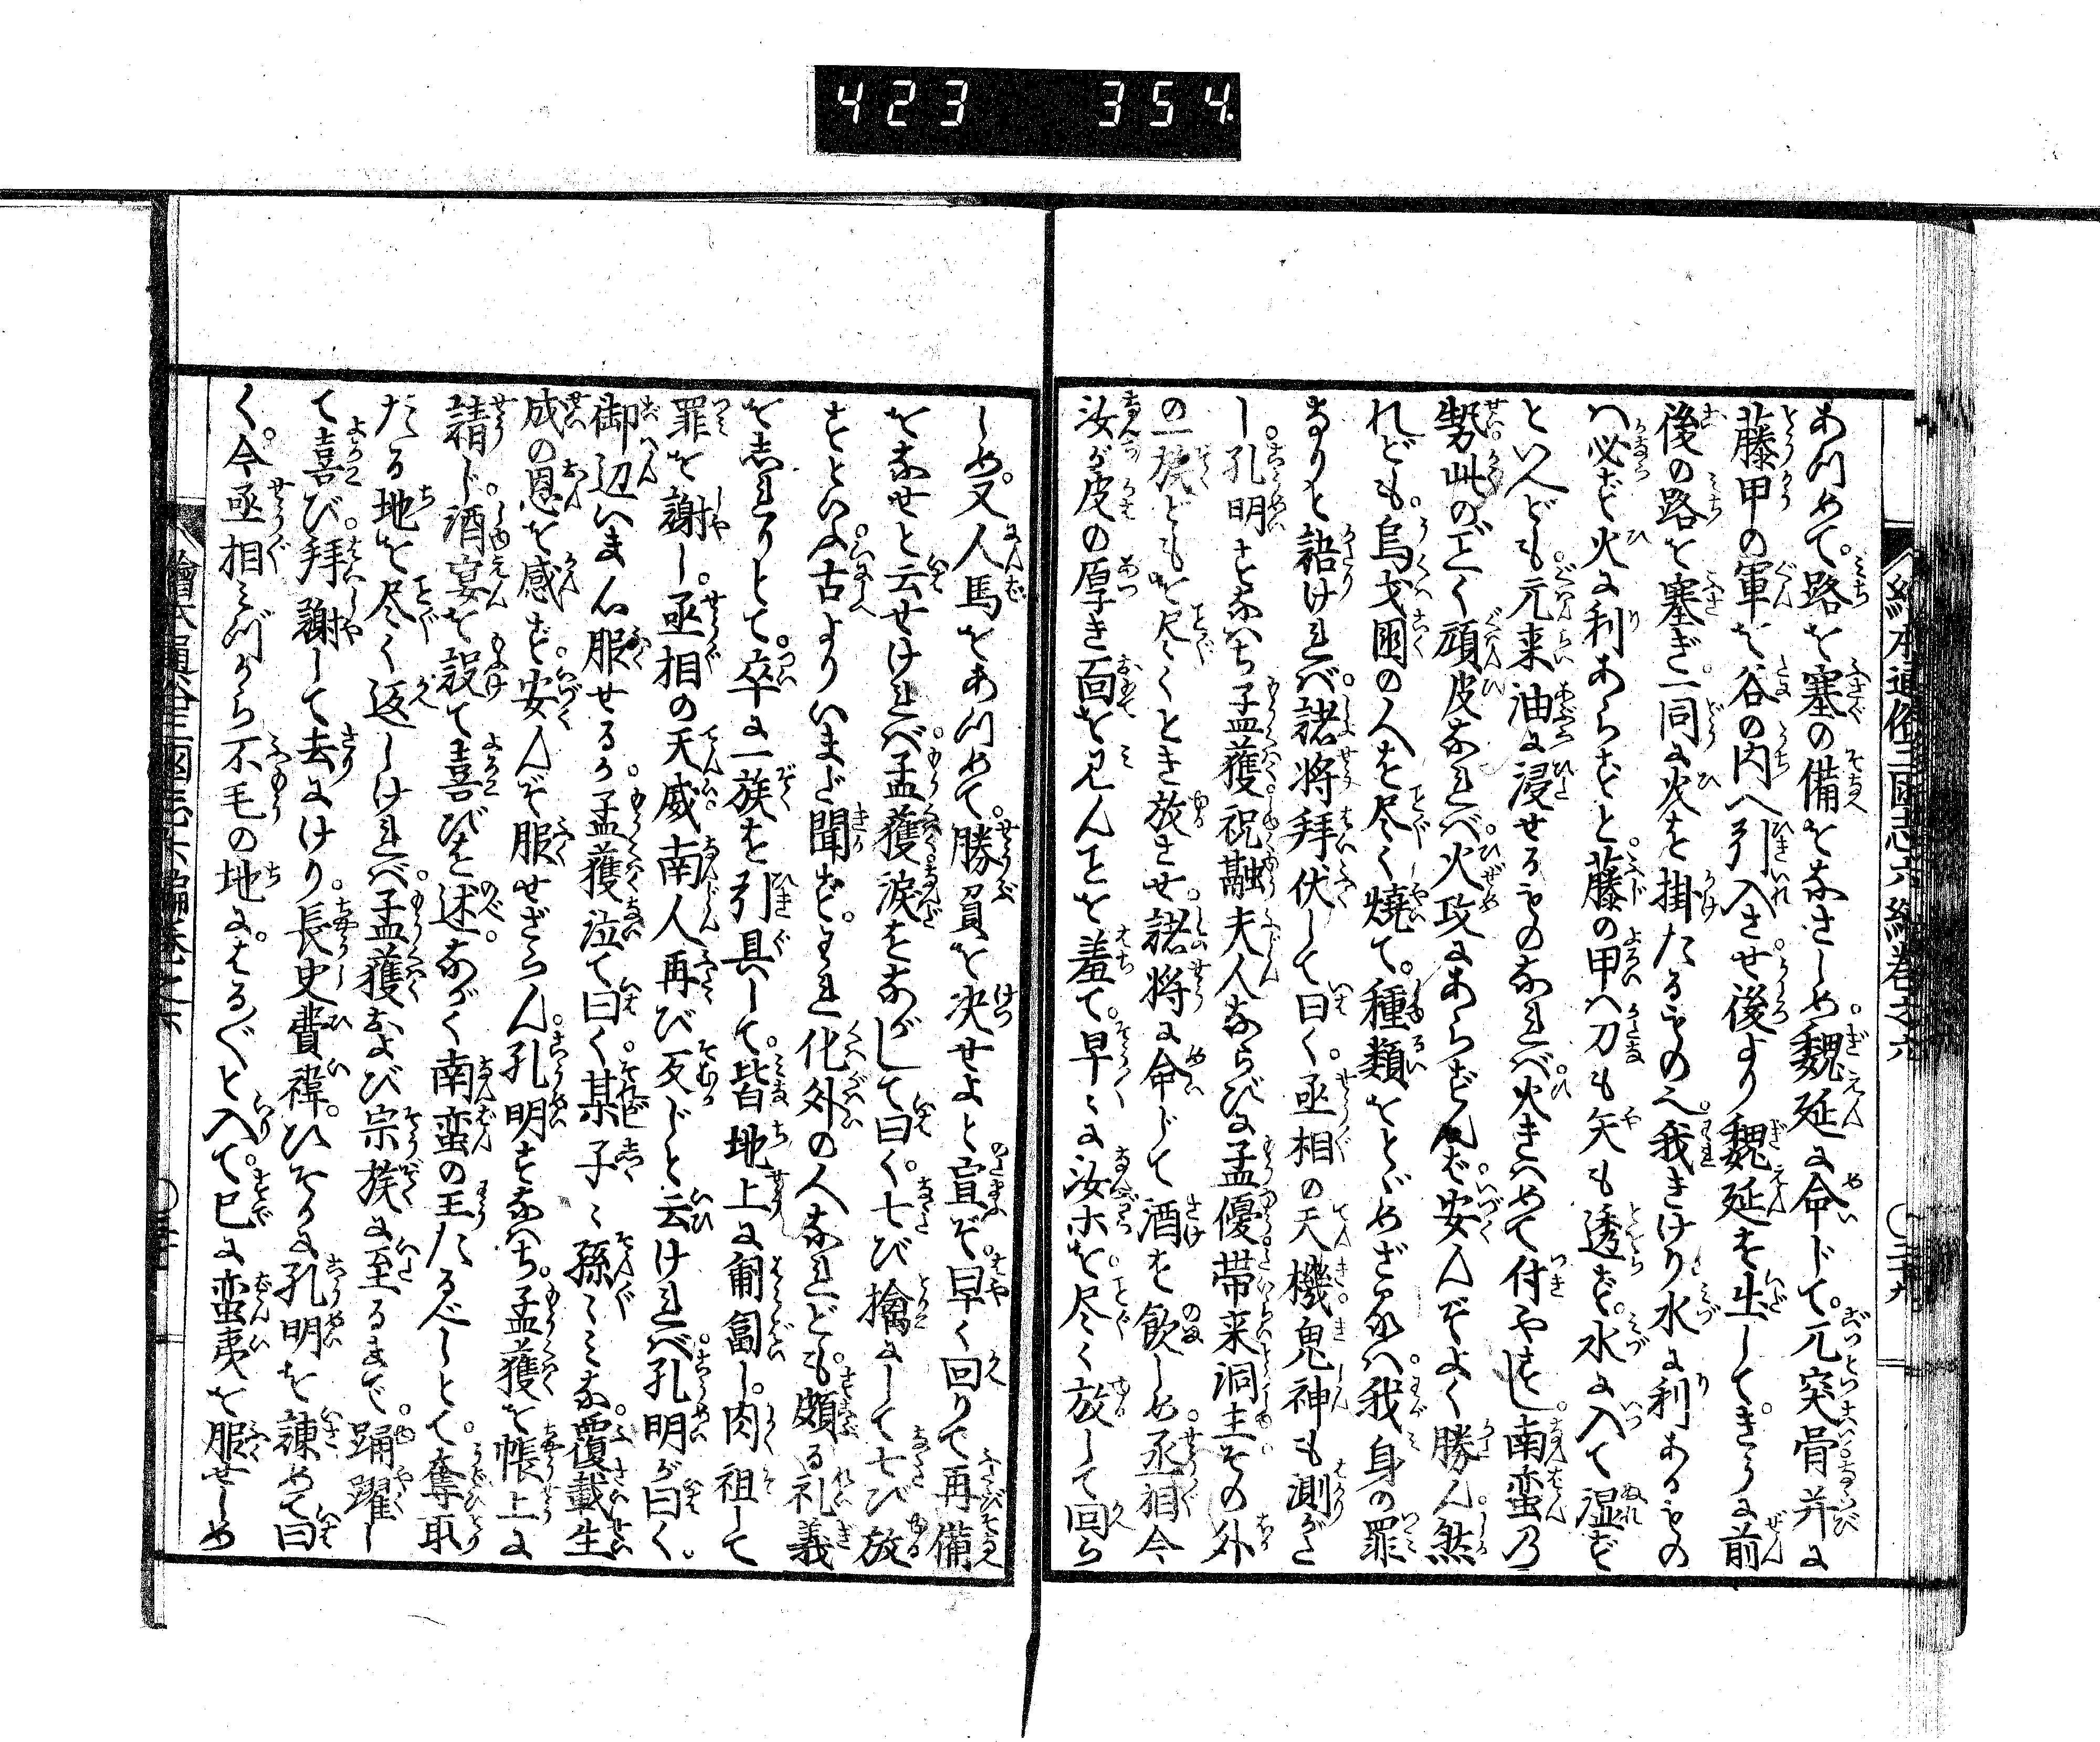 423 354.
絵本通俗三国志六編巻之六 〇二十九
あつめて。路を塞の備をなさしめ。魏延に命じて。兀突骨并に
藤甲の軍を谷の内へ引入させ。後より魏延を出して。さらに前
後の路を塞ぎ。一同に火を掛たるもの也。我きけり水に利あるもの
ハ必ず火に利あらずと。藤の甲ハ刀も矢も透ず。水に入て湿ず
といへども。元来油に浸せるものなれバ。火きハめて付やすし。南蛮乃
勢此のごとく頑皮なれバ。火攻にあらずんバ。安んぞよく勝ん。然
れども。烏戈国の人を尽く焼て。種類をとゞめざるハ。我身の罪
なりと語けれバ。諸将拝伏して曰く。丞相の天機。鬼神も測がた
し。孔明すなハち孟獲。祝融夫人ならびに孟優。帯来洞主その外
の一族どもを尽くとき放させ。諸将に命じて酒を飲しめ。丞相今
汝が皮の厚き面を見んことを羞て。早々に汝ホを尽く放して回ら
しめ。又人馬をあつめて。勝負を決せよと宣ぞ。早く回りて再備
をなせと云せけれバ。孟獲涙をながして曰く。七び擒にして七び放
すといふ。古よりいまだ聞ず。われ化外の人なれども。頗る礼義
をしれりとて。卒に一族を引具して。皆地上に匍匐し。肉袒して
罪を謝し。丞相の天威南人再び反じと云けれバ。孔明が曰く。
御辺ハいま心服せるか。孟獲泣て曰く。某子々孫々みな。覆載生
成の恩を感ず。安んぞ服せざらん。孔明すなハち。孟獲を帳上に
請じ。酒宴を設て喜びを述。ながく南蛮の王たるべしとて。奪取
たる地を尽く返しけれバ。孟獲および宗族に至るまで。踊躍し
て喜び。拝謝して去にけり。長史費禕。ひそかに孔明を諌めて曰
く。今丞相みづから不毛の地に。はる〴〵と入て。已に蛮夷を服せしめ
繪本通俗三國志六編巻之六 〇三十